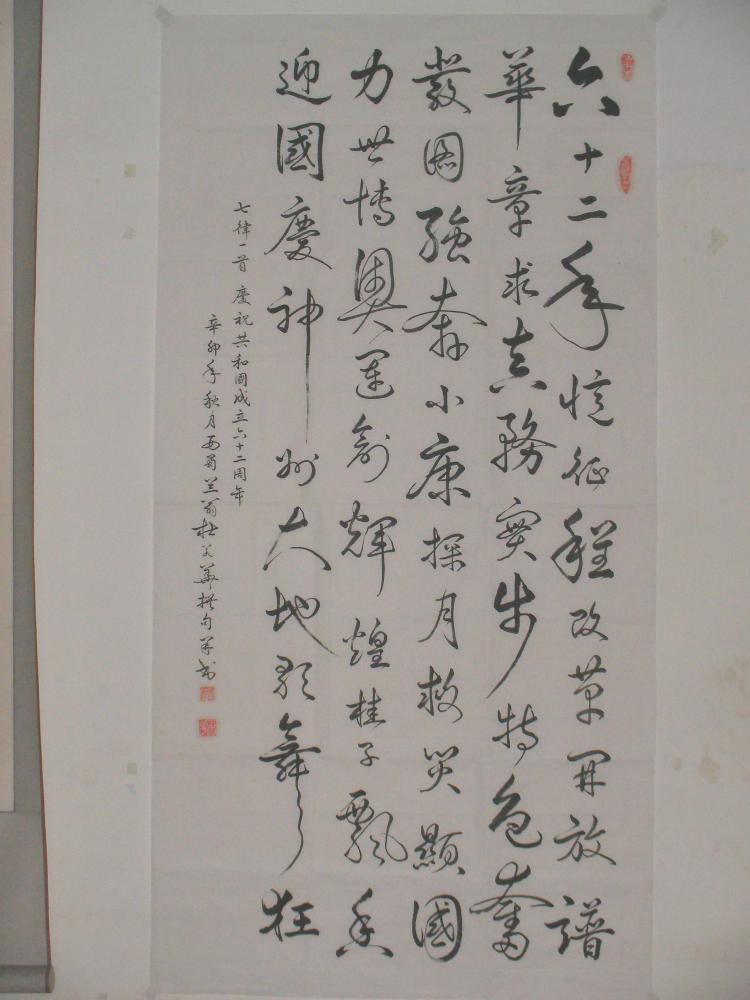 六十二年忆征程改革开放谱
華章求真務實步特色奮
發图強奔小康探月救災顯國
力世博奥運創輝煌桂子飘香
迎國慶神州大地歌舞狂
七律一首 慶祝共和國成立六十二周年
辛卯年秋月西蜀兰翁杜 華撰句并书